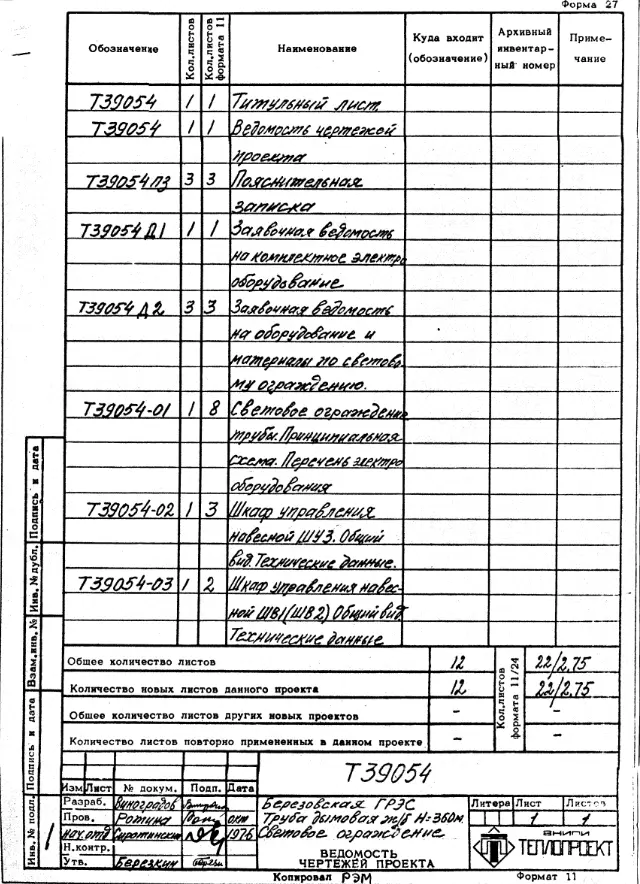 Форма 27
Обозначение Кол.листов Кол.листов формата 11 Наименование Куда входит (обозначение) Архивный инвентар- ный номер Приме- чание
Т39054 1 1 Титульный лист
Т39054 1 1 Ведомость чертежей
проекта
Т39054 ПЗ 3 3 Пояснительная
записка
Т39054 Д1 1 1 Заявочная ведомость
на комплектное электро
оборудование
Т39054 Д2 3 3 Заявочная ведомость
на оборудование и
материалы по светово
му ограждению.
Т39054-01 1 8 Световое ограждение
трубы. Принципиальная
схема. Перечень электро
оборудования
Т39054-02 1 3 Шкаф управления
навесной ШУЗ. Общий
вид. Технические данные.
Т39054-03 1 2 Шкаф управления навес-
ной ШВ1(ШВ2) Общий вид
Технические данные
Общее количество листов 12 Кол.листов формата 11/24 22/2.75
Количество новых листов данного проекта 12 22/2.75
Общее количество листов других новых проектов - -
Количество листов повторно примененных в данном проекте - -
Подпись и дата
Инв.№дубл.
Взам.инв.№
Подпись и дата
Инв.№ подл.
1
Т39054
Изм Лист № докум. Подп. Дата
Разраб. Виноградов
Пров. Ротина окт
нач.отд Сиротинский 1976
Н.контр.
Утв. Березкин
Березовская ГРЭС
Труба дымовая ж/б Н=360м.
Световое ограждение
ВЕДОМОСТЬ
ЧЕРТЕЖЕЙ ПРОЕКТА
Литера Лист Листов
1 1
ВНИПИ
ТЕПЛОПРОЕКТ
Копировал РЭМ Формат 11